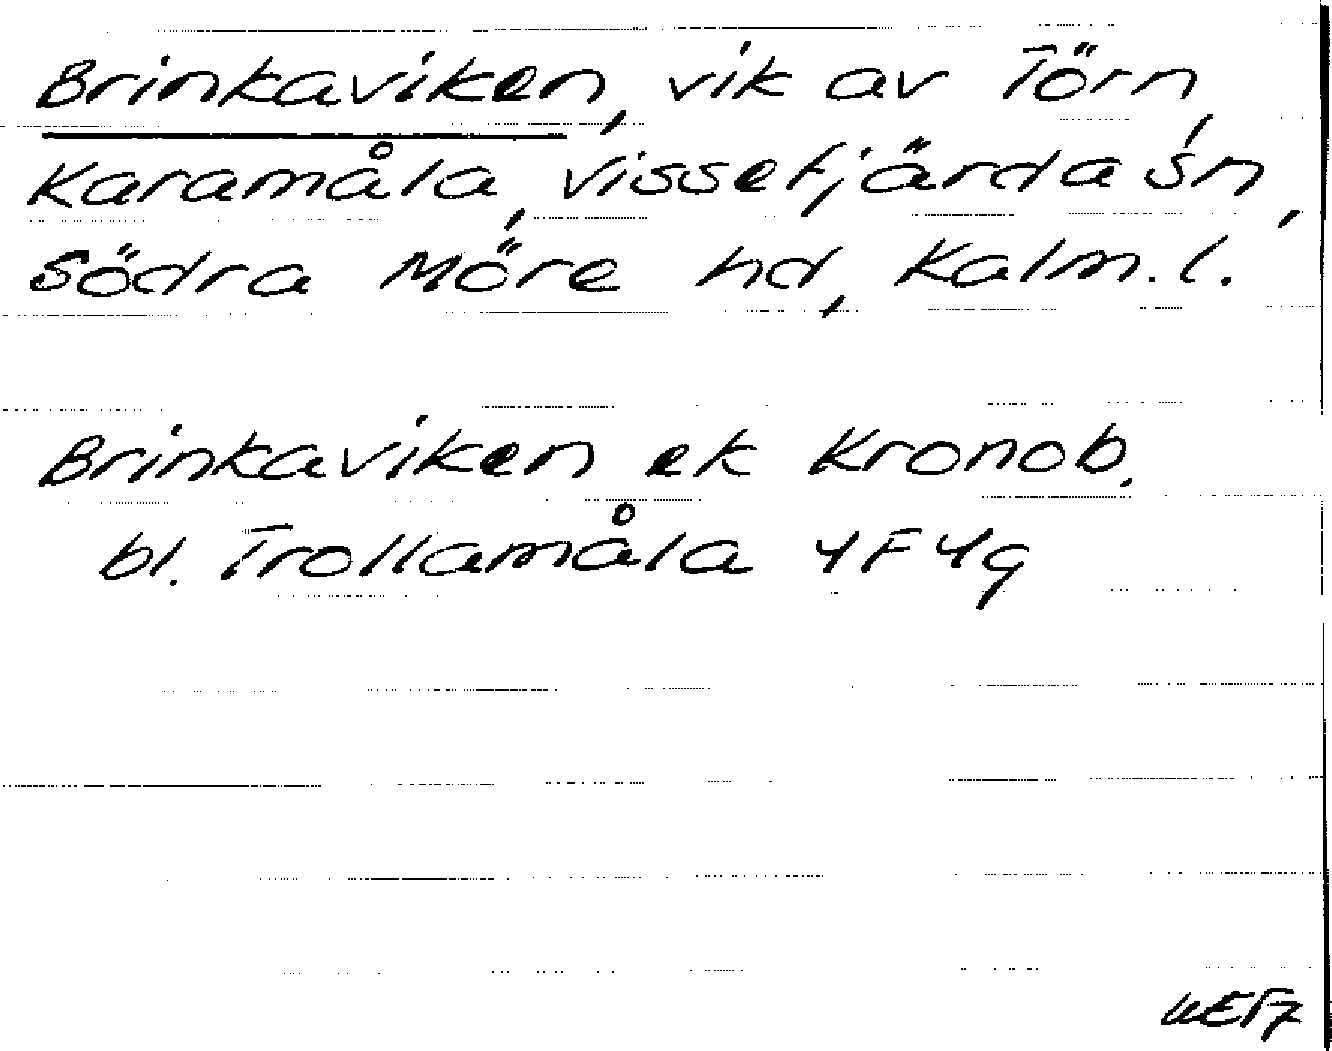 Brinkaviken, vik av Törn,
Karamåla, Vissefjärda sn,
Södra Möre hd, Kalm. l.
Brinkaviken ek Kronob.
bl. Trollamåla 4F4g